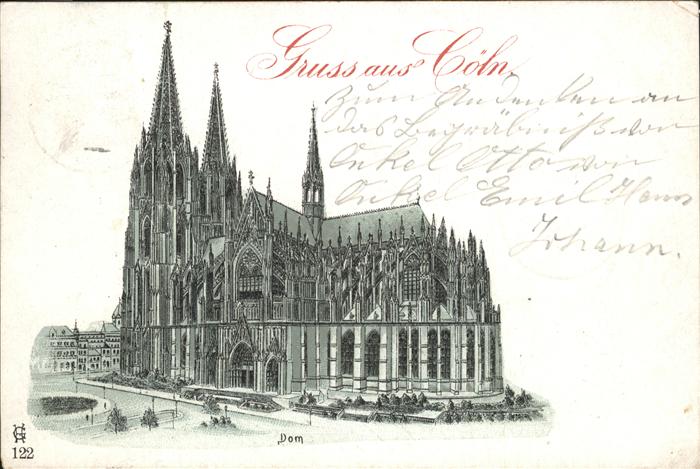 Gruss aus Cöln.
Zum Andenken an
das Begräbniß von
Onkel Otto von
Onkel Emil Hans
Johann.
Dom
122